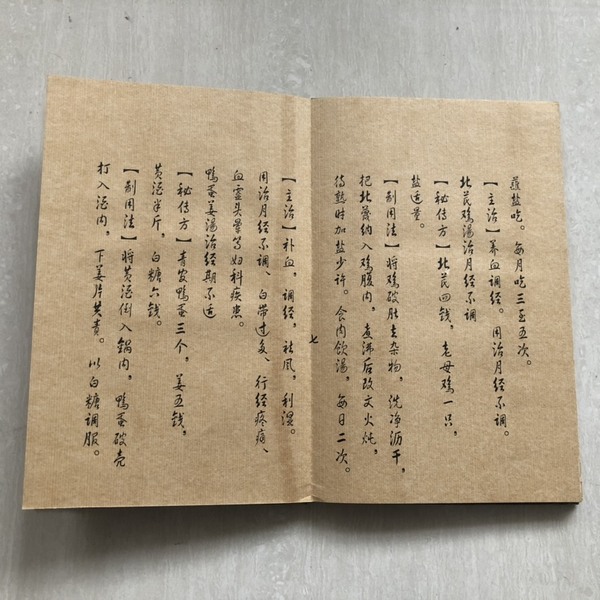 蘸盐吃。每月吃三至五次。
【主治】养血调经。用治月经不调。
北芪鸡汤治月经不调
【秘传方】北芪四钱，老母鸡一只，
盐适量。
【制用法】将鸡破肚去杂物，洗净沥干，
把北蓍纳入鸡腹内，煮沸后改文火炖，
待熟时加盐少许。食肉饮汤，每日二次。
七
【主治】补血，调经，祛风，利湿。
用治月经不调、白带过多、行经疼痛、
血虚头晕等妇科疾患。
鸭蛋姜汤治经期不适
【秘传方】青皮鸭蛋三个，姜五钱，
黄酒半斤，白糖六钱。
【制用法】将黄酒倒入锅内，鸭蛋破壳
打入酒内，下姜片共煮。以白糖调服。